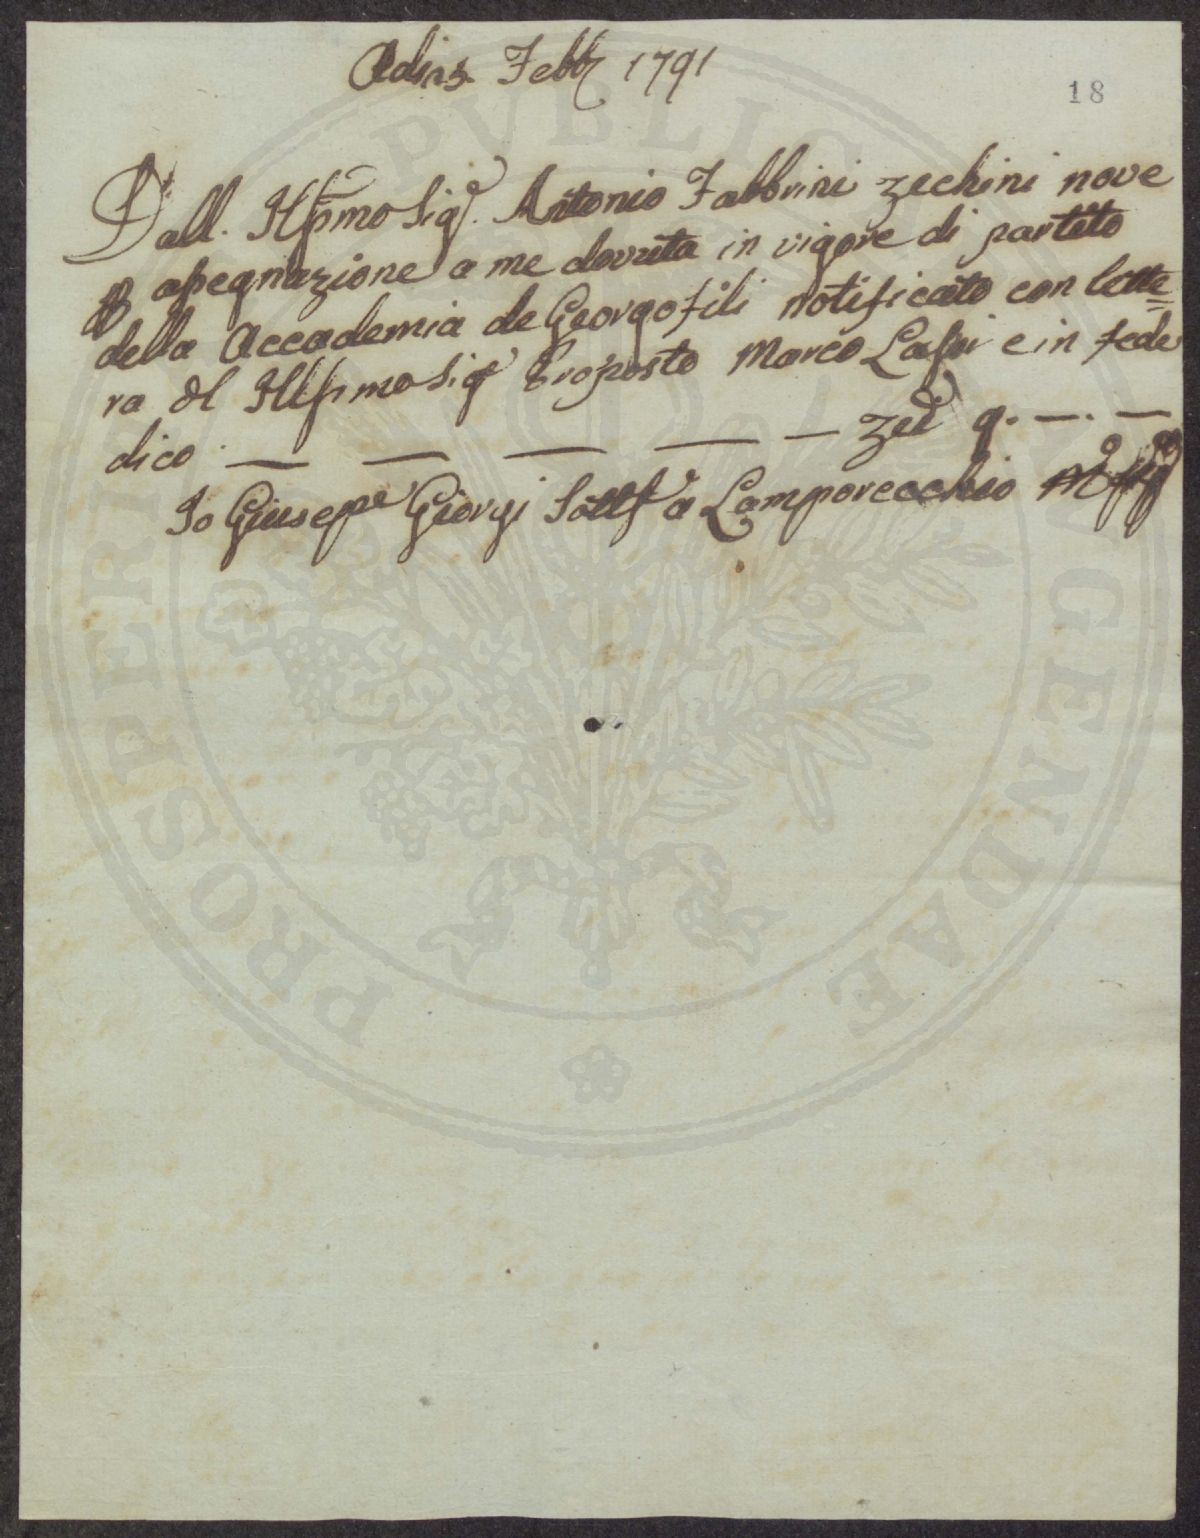 Adi 13 Febb 1791
18
Dall. Illssmo Sigr. Antonio Fabbrini zechini nove
assegnazione a me dovuta in vigore di partito
della Accademia de Georgofili notificato con lette=
ra Illssimo Sigr Proposto Marco Lastri e in fede
dico. — — — — zec 9. —. —
Io Giusepe Giorgi a Lamporecchio
PROSPERITATI PUBLICAE AUGENDAE